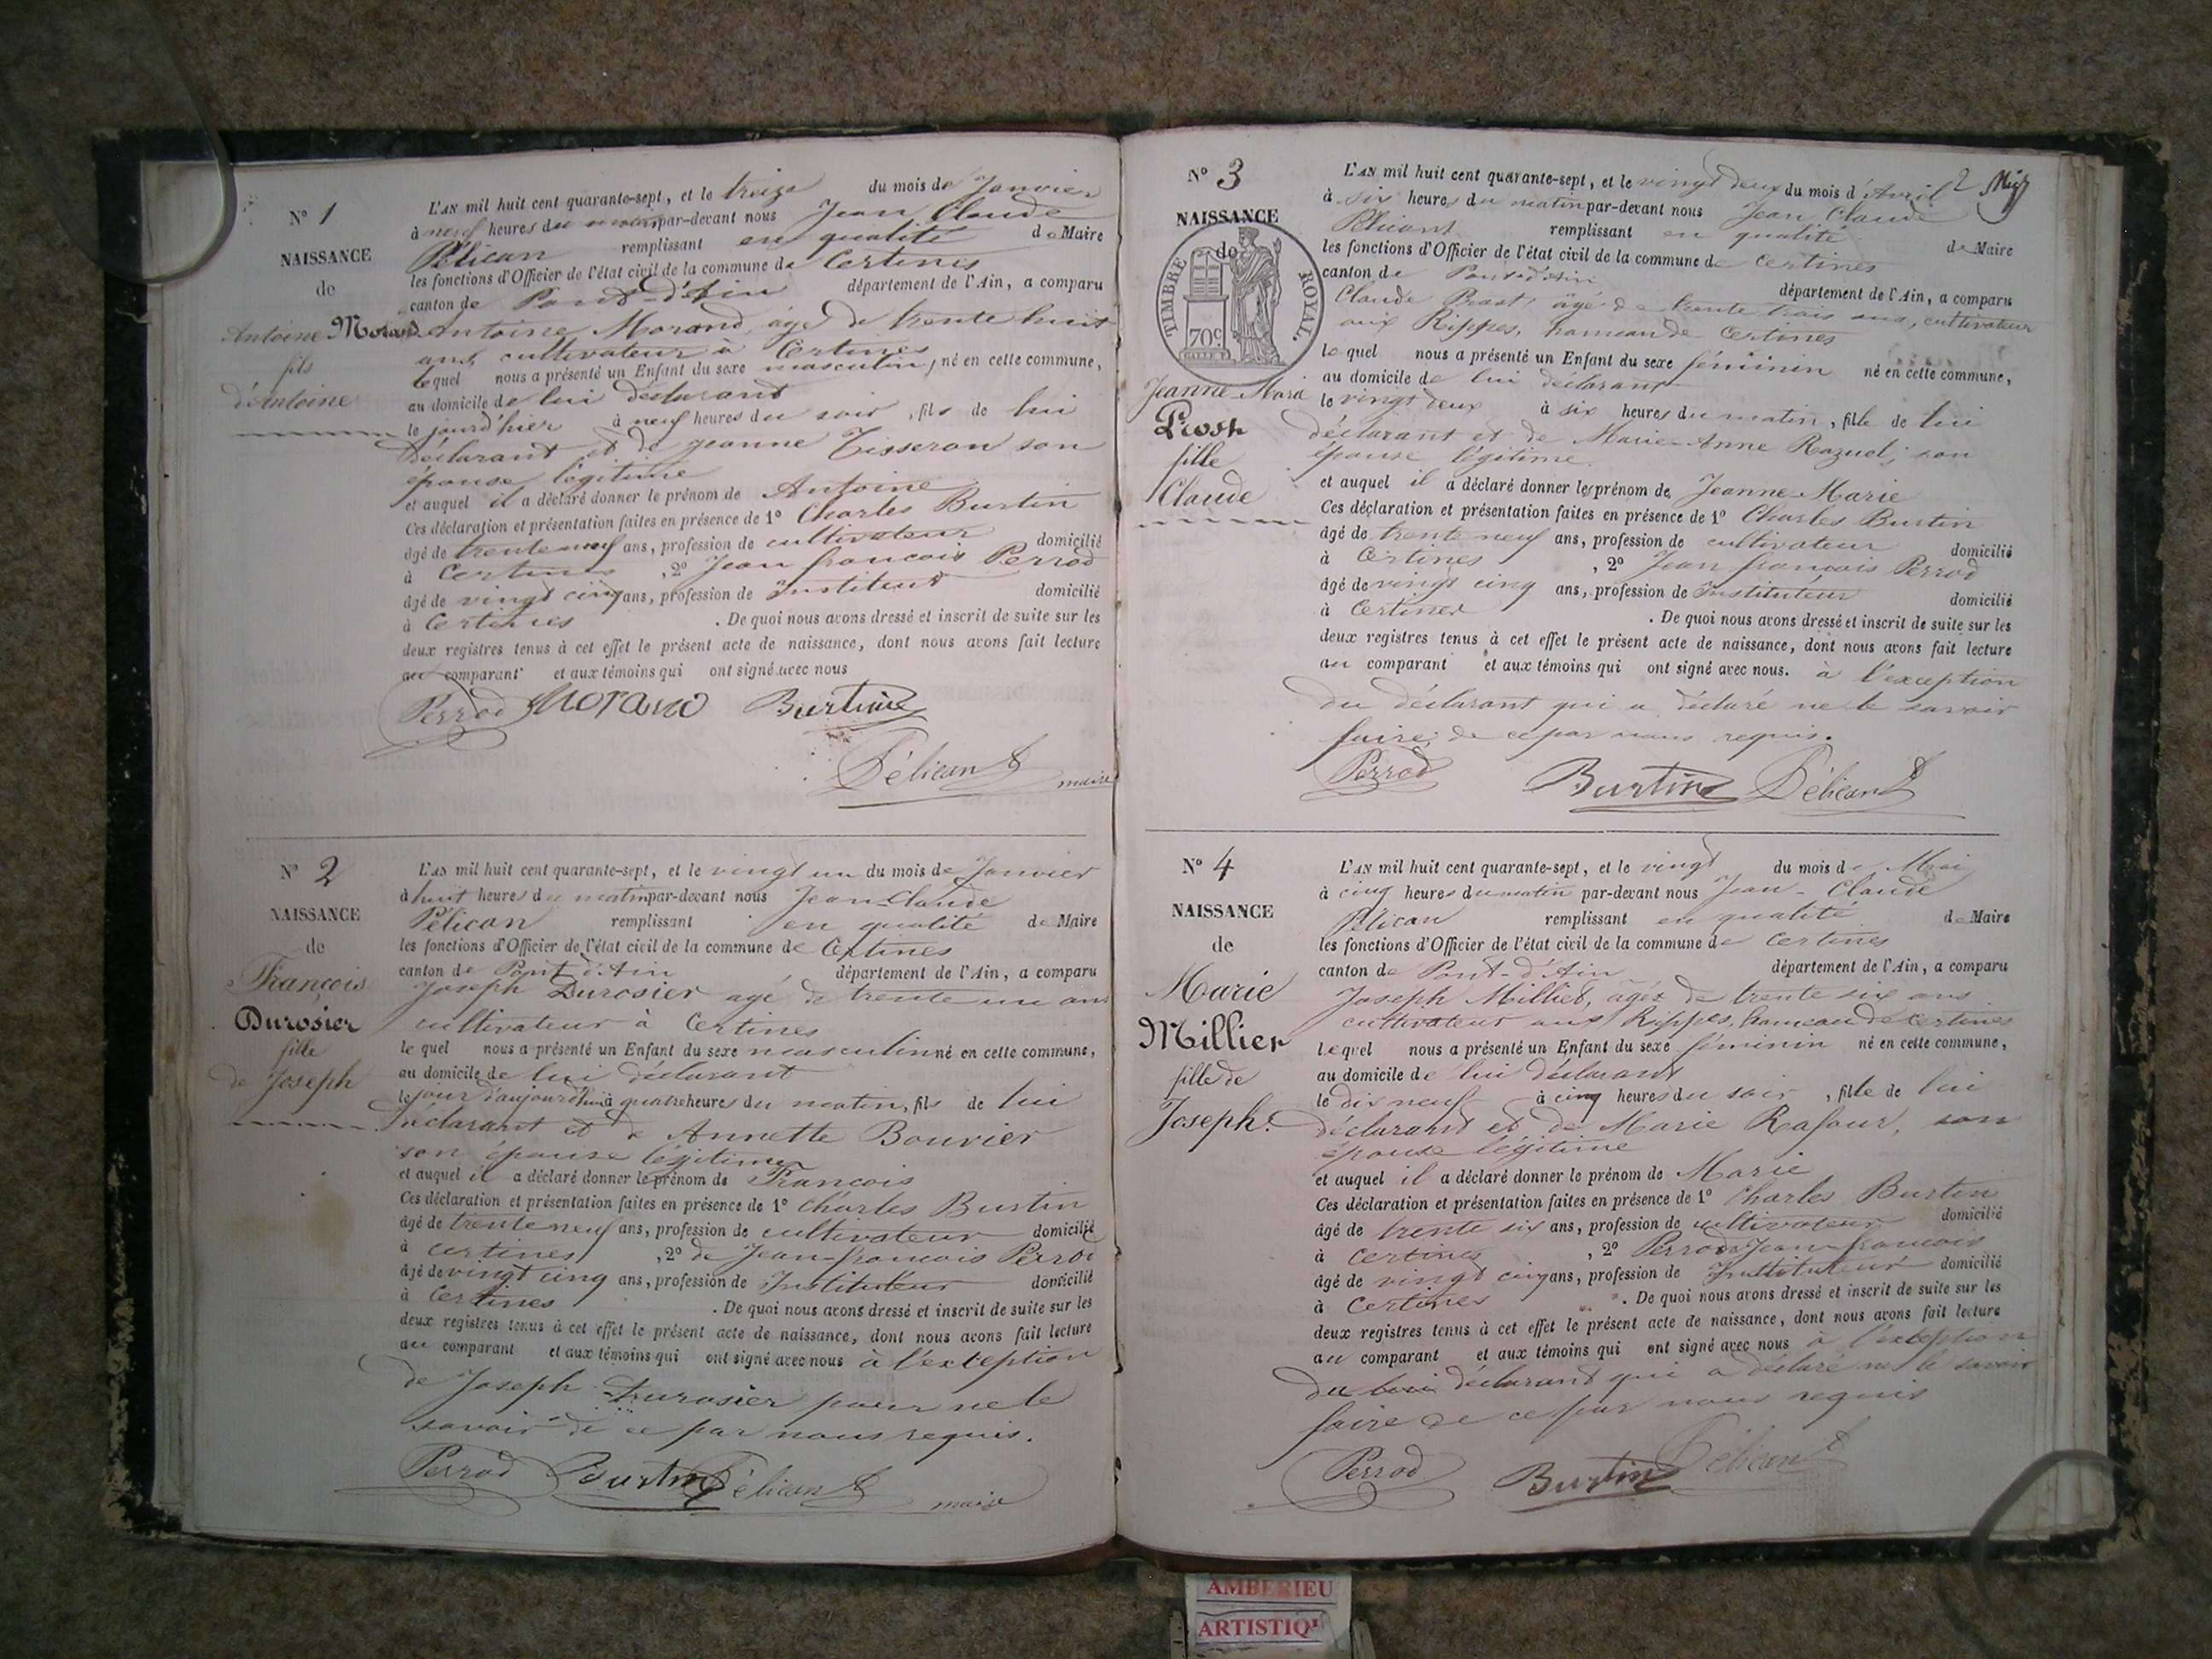 N° 1
NAISSANCE
de
Antoine Morand
fils
d'Antoine
L'AN mil huit cent quarante-sept, et le treize du mois de Janvier
à neuf heures du matin par-devant nous Jean Claude
Pélican remplissant en qualité de Maire
les fonctions d'Officier de l'état civil de la commune de Certines
canton de Pont-d'Ain département de l'Ain, a comparu
Antoine Morand, âgé de trente huit
ans, cultivateur à Certines
lequel nous a présenté un Enfant du sexe masculin, né en cette commune,
au domicile de lui déclarant
le jourd'hier à neuf heures du soir, fils de lui
déclarant et de jeanne Tisseron son
épouse légitime
et auquel il a déclaré donner le prénom de Antoine
Ces déclaration et présentation faites en présence de 1° Charles Burtin
âgé de trente neuf ans, profession de cultivateur domicilié
à Certines, 2° Jean francois Perrod
âgé de vingt cinq ans, profession de Instituteur domicilié
à Certines. De quoi nous avons dressé et inscrit de suite sur les
deux registres tenus à cet effet le présent acte de naissance, dont nous avons fait lecture
au comparant et aux témoins qui ont signé avec nous
Perrod Morand Burtin
Pélican maire
N° 2
NAISSANCE
de
François
Durosier
fille
de Joseph
L'AN mil huit cent quarante-sept, et le vingt un du mois de Janvier
à huit heures du matin par-devant nous Jean-Claude
Pélican remplissant en qualité de Maire
les fonctions d'Officier de l'état civil de la commune de Certines
canton de Pont d'Ain département de l'Ain, a comparu
Joseph Durosier agé de trente un ans
cultivateur à Certines
le quel nous a présenté un Enfant du sexe masculin né en cette commune,
au domicile de lui déclarant
le jour d'aujourd'hui à quatre heures du matin, fils de lui
déclarant et de Annette Bouvier
son épouse légitime
et auquel il a déclaré donner le prénom de Francois
Ces déclaration et présentation faites en présence de 1° Charles Burtin
âgé de trente neuf ans, profession de cultivateur domicilié
à certines, 2° de Jean-francois Perrod
âgé de vingt cinq ans, profession de Instituteur domicilié
à Certines. De quoi nous avons dressé et inscrit de suite sur les
deux registres tenus à cet effet le présent acte de naissance, dont nous avons fait lecture
au comparant et aux témoins qui ont signé avec nous à l'exception
de Joseph Durosier pour ne le
savoir de ce par nous requis.
Perrod Burtin Pélican maire
2
N° 3
NAISSANCE
de
TIMBRE ROYAL.
70c
Jeanne-Marie
Prost
fille
Claude
L'AN mil huit cent quarante-sept, et le vingt deux du mois d'Avril
à six heures du matin par-devant nous Jean Claude
Pélican remplissant en qualité de Maire
les fonctions d'Officier de l'état civil de la commune de Certines
canton de Pont d'Ain département de l'Ain, a comparu
Claude Prost, âgé de trente trois ans, cultivateur
aux Rippes, hameau de Certines
le quel nous a présenté un Enfant du sexe féminin né en cette commune,
au domicile de lui déclarant
le vingt deux à six heures du matin, fille de lui
déclarant et de Marie-Anne Razuel, son
épouse légitime
et auquel il a déclaré donner les prénom de Jeanne-Marie
Ces déclaration et présentation faites en présence de 1° Charles Burtin
âgé de trente neuf ans, profession de cultivateur domicilié
à Certines, 2° Jean francois Perrod
âgé de vingt cinq ans, profession de Instituteur domicilié
à Certines. De quoi nous avons dressé et inscrit de suite sur les
deux registres tenus à cet effet le présent acte de naissance, dont nous avons fait lecture
au comparant et aux témoins qui ont signé avec nous. à l'exception
du déclarant qui a déclaré ne le savoir
faire; de ce par nous requis.
Perrod Burtin Pélican
N° 4
NAISSANCE
de
Marie
Millier
fille de
Joseph.
L'AN mil huit cent quarante-sept, et le vingt du mois de Mai
à cinq heures du matin par-devant nous Jean-Claude
Pélican remplissant en qualité de Maire
les fonctions d'Officier de l'état civil de la commune de Certines
canton de Pont-d'Ain département de l'Ain, a comparu
Joseph Milliet, âgés de trente six ans
cultivateur aux Rippes, hameau de certines
lequel nous a présenté un Enfant du sexe féminin né en cette commune,
au domicile de lui déclarant
le dix neuf à cinq heures du soir, fille de lui
déclarant et de Marie Rafour, son
épouse légitime
et auquel il a déclaré donner le prénom de Marie
Ces déclaration et présentation faites en présence de 1° Charles Burtin
âgé de trente six ans, profession de cultivateur domicilié
à Certines, 2° Perrod Jean-francois
âgé de vingt cinq ans, profession de Instituteur domicilié
à Certines. De quoi nous avons dressé et inscrit de suite sur les
deux registres tenus à cet effet le présent acte de naissance, dont nous avons fait lecture
au comparant et aux témoins qui ont signé avec nous à l'exception
du lui déclarant qui a déclaré ne le savoir
faire de ce par nous requis
Perrod Burtin Pélican
AMBERIEU
ARTISTIQ